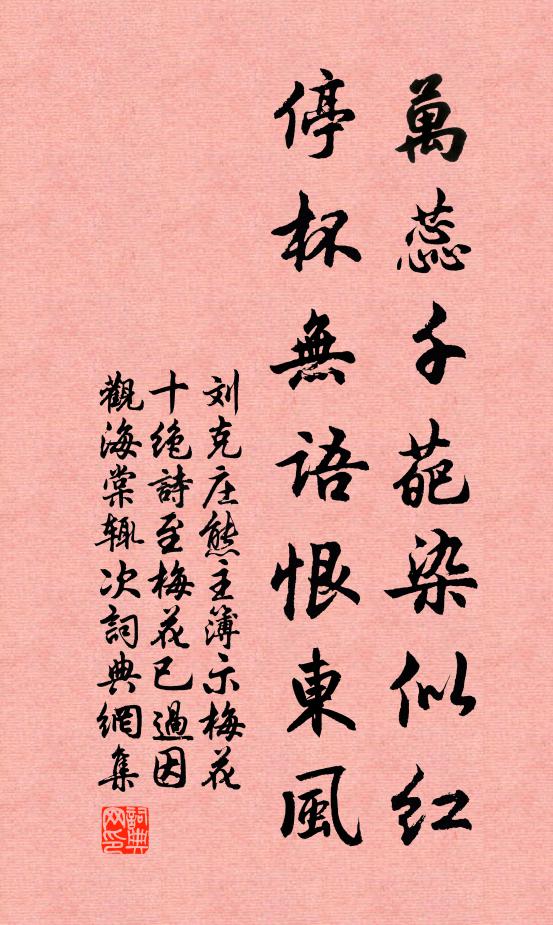 萬蕊千葩染似红
停杯無語恨東風
刘克庄熊主簿示梅花
十绝詩至梅花已過因
觀海棠辄次詞典網集
詞典
网印